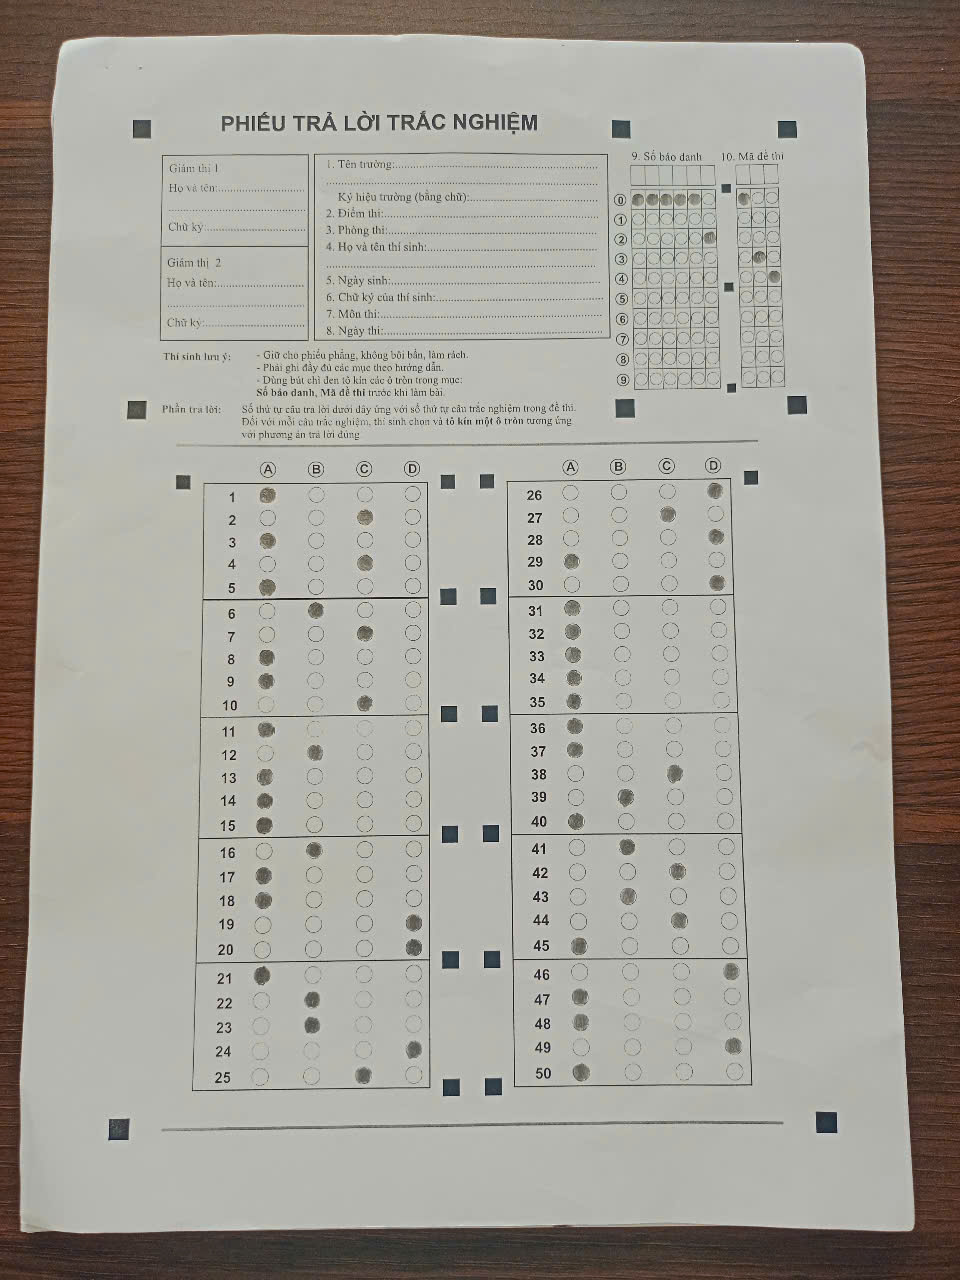 PHIẾU TRẢ LỜI TRẮC NGHIỆM
Giám thị 1
Họ và tên:
Chữ ký:
Giám thị 2
Họ và tên:
Chữ ký:
1. Tên trường:
Ký hiệu trường (bằng chữ):
2. Điểm thi:
3. Phòng thi:
4. Họ và tên thí sinh:
5. Ngày sinh:
6. Chữ ký của thí sinh:
7. Môn thi:
8. Ngày thi:
9. Số báo danh 10. Mã đề thi
0
1
2
3
4
5
6
7
8
9
Thí sinh lưu ý: - Giữ cho phiếu phẳng, không bôi bẩn, làm rách.
- Phải ghi đầy đủ các mục theo hướng dẫn.
- Dùng bút chì đen tô kín các ô tròn trong mục:
Số báo danh, Mã đề thi trước khi làm bài.
Phần trả lời: Số thứ tự câu trả lời dưới đây ứng với số thứ tự câu trắc nghiệm trong đề thi.
Đối với mỗi câu trắc nghiệm, thí sinh chọn và tô kín một ô tròn tương ứng
với phương án trả lời đúng
A B C D
1
2
3
4
5
6
7
8
9
10
11
12
13
14
15
16
17
18
19
20
21
22
23
24
25
A B C D
26
27
28
29
30
31
32
33
34
35
36
37
38
39
40
41
42
43
44
45
46
47
48
49
50